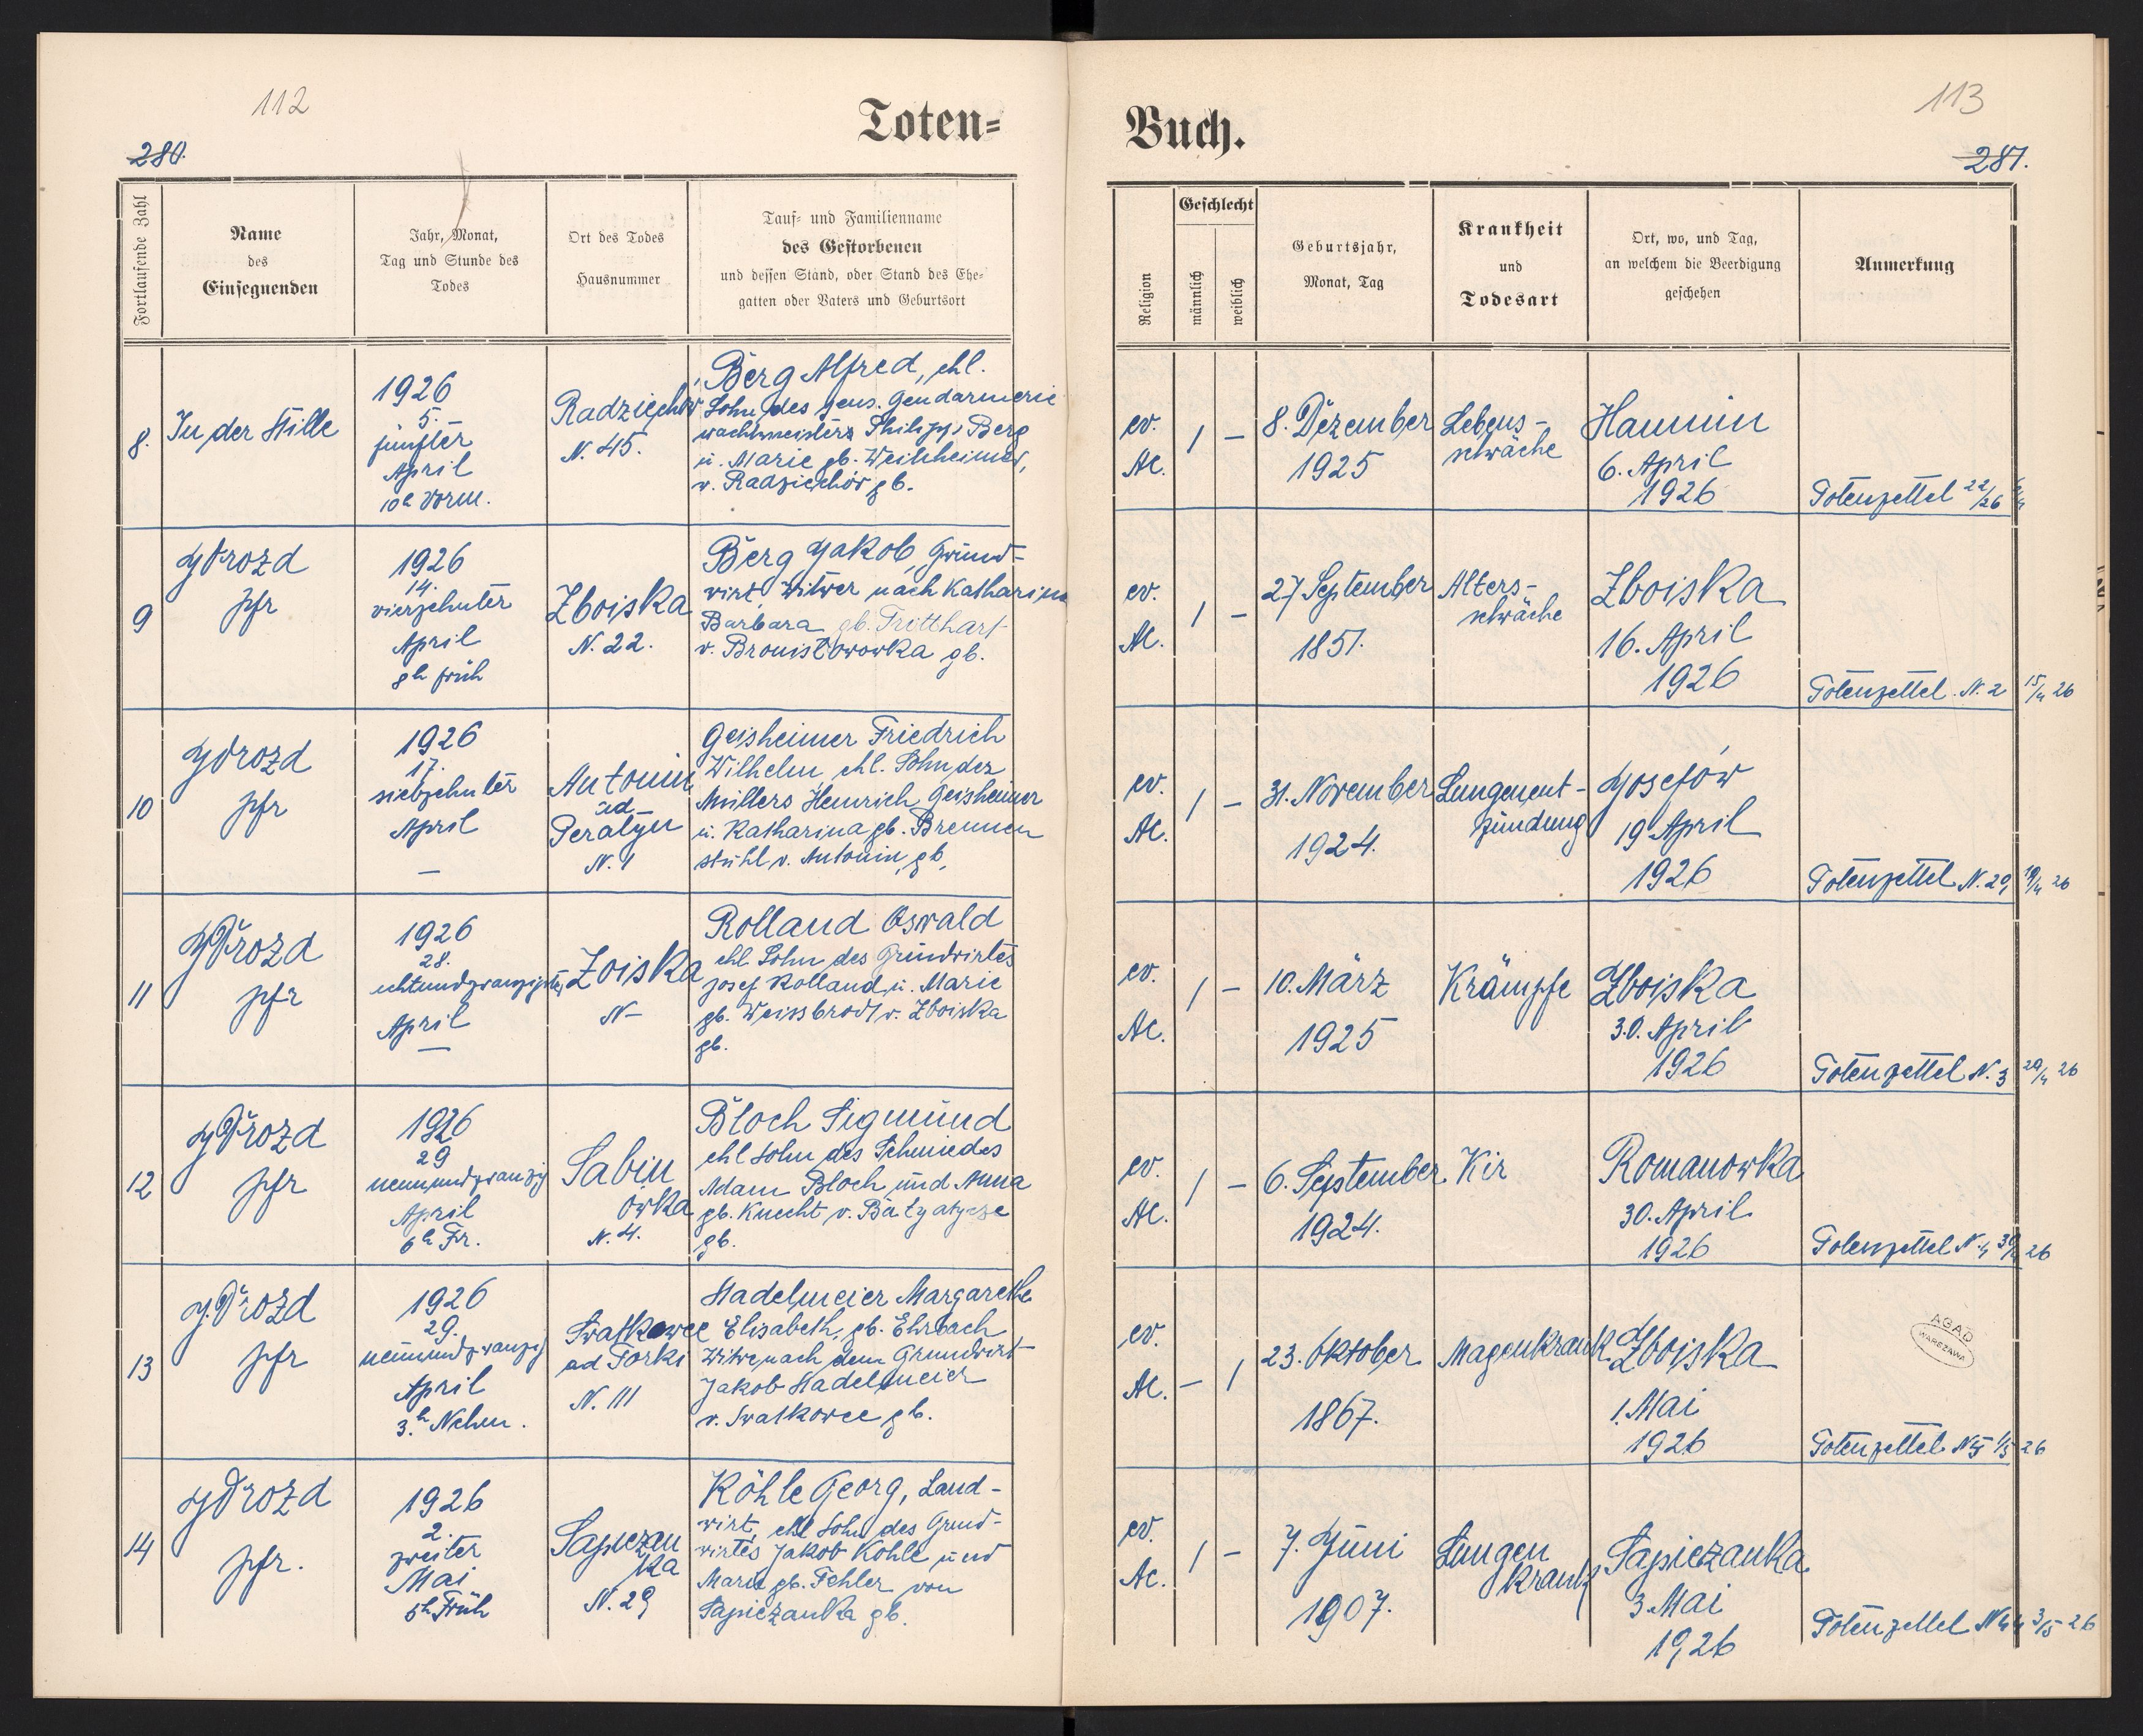 112
Toten=
280.
Fortlaufende Zahl
Name
des
Einsegnenden
Jahr, Monat,
Tag und Stunde des
Todes
Ort des Todes
Hausnummer
Tauf= und Familienname
des Gestorbenen
und dessen Stand, oder Stand des Ehe=
gatten oder Vaters und Geburtsort
8.
In der Stille
1926
5.
fünfter
April
10h Vorm.
Radziechów
N. 45.
Berg Alfred, ehl.
Sohn des pens. Gendarmerie
wachtmeisters Philipp Berg
u. Marie gb.
v. Radziechów gb.
9
JDrozd
pfr
1926
14.
vierzehnter
April
8h früh
Zboiska
N. 22.
Berg Jakob, Grund-
wirt, Witwer nach Katharina
Barbara gb. Tritthart
v. Bronisłowowka gb.
10
JDrozd
pfr
1926
17.
siebzehnter
April
—
Antonin
ad
Peratyn
N. 1
Geisheimer Friedrich
Wilhelm ehl. Sohn des
Müllers Heinrich Geisheimer
u. Katharina gb. Brennen
stuhl v. Antonin gb.
11
JDrozd
pfr
1926
28.
achtundzwanzigster
April
—
Zoiska
N –
Rolland Oswald
ehl Sohn des Grundwirtes
Josef Rolland u. Marie
gb. Weissbrodt v. Zboiska
gb.
12
JDrozd
pfr
1926
29
neunundzwanzig
April
6h Fr.
Sabin
owka
N. 4.
Bloch Sigmund
ehl Sohn des Schmiedes
Adam Bloch und Anna
gb. Knecht v. Batyatycze
gb.
13
J.Drozd
pfr
1926
29.
neunundzwanzig
April
3.h Nchm.
Swatkowce
ad Torki
N. 111
Hadelmeier Margarethe
Elisabeth, gb. Ehrbach
Witwe nach dem Grundwirt
Jakob Hadelmeier
v. Swatkowce gb.
14
JDrozd
pfr.
1926
2.
zweiter
Mai
5h Früh
Sapiezan
ka
N. 29
Köhle Georg, Land-
wirt, ehl Sohn des Grund-
wirtes Jakob Köhle und
Marie gb. Fehler von
Sapiezanka gb.
113
Buch.
281.
Religion
Geschlecht
männlich
weiblich
Geburtsjahr,
Monat, Tag
Krankheit
und
Todesart
Ort, wo, und Tag,
an welchem die Beerdigung
geschehen
Anmerkung
ev.
AC.
/ –
8. Dezember
1925
Lebens-
schwäche
Hanunin
6. April
1926
Totenzettel 22/26
ev.
AC.
/ –
27 September
1851.
Alters-
schwäche
Zboiska
16. April
1926
Totenzettel N. 2 15/4 26
ev.
AC.
/ –
31. November
1924.
Lungenent-
zündung
Josefów
19 April
1926
Totenzettel N. 29 19/4 26
ev.
AC.
/ –
10. März
1925
Krämpfe
Zboiska
30. April
1926
Totenzettel N. 3 29/4 26
ev.
AC.
/ –
6. September
1924.
Kir
Romanowka
30. April
1926
Totenzettel N. 4 30/4 26
ev.
AC.
– /
23. Oktober
1867.
Magenkrank
Zboiska
1. Mai
1926
Totenzettel N 5 1/5 26
AGAD
WARSZAWA
ev.
AC.
/ –
7. Juni
1907.
Lungen
krank
Sapiezanka
3 Mai
1926
Totenzettel 3/5 26